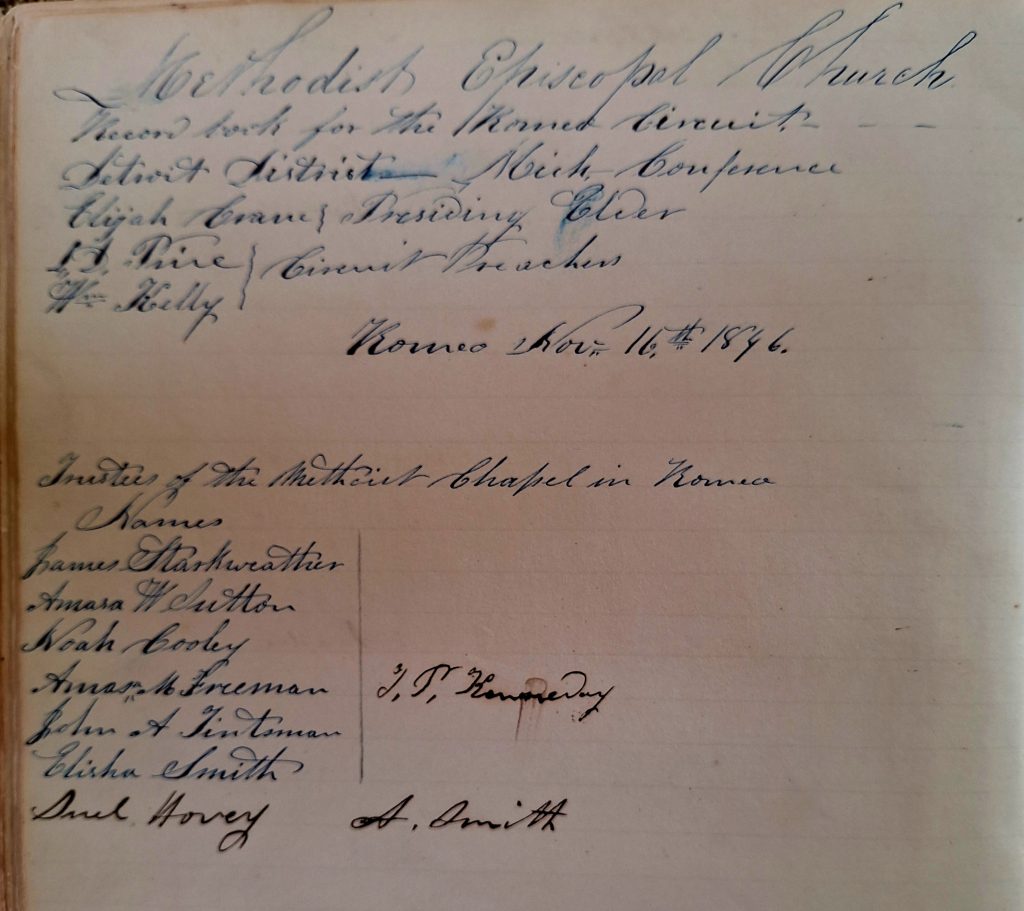 Methodist Episcopal Church
Record book for the Romeo Circuit - - -
Detroit District — Mich. Conference
Elijah Crane } Presiding Elder
Pire } Circuit Preachers
Wm Kelly
Romeo Nov. 16th 1846.
Trustees of the Chapel in Romeo
Names
James Starkweather
Amasa W Sutton
Noah Cooley
Amos M Freeman T, P, Kenneday
John A Tintsman
Elisha Smith
Hovey A. Smith